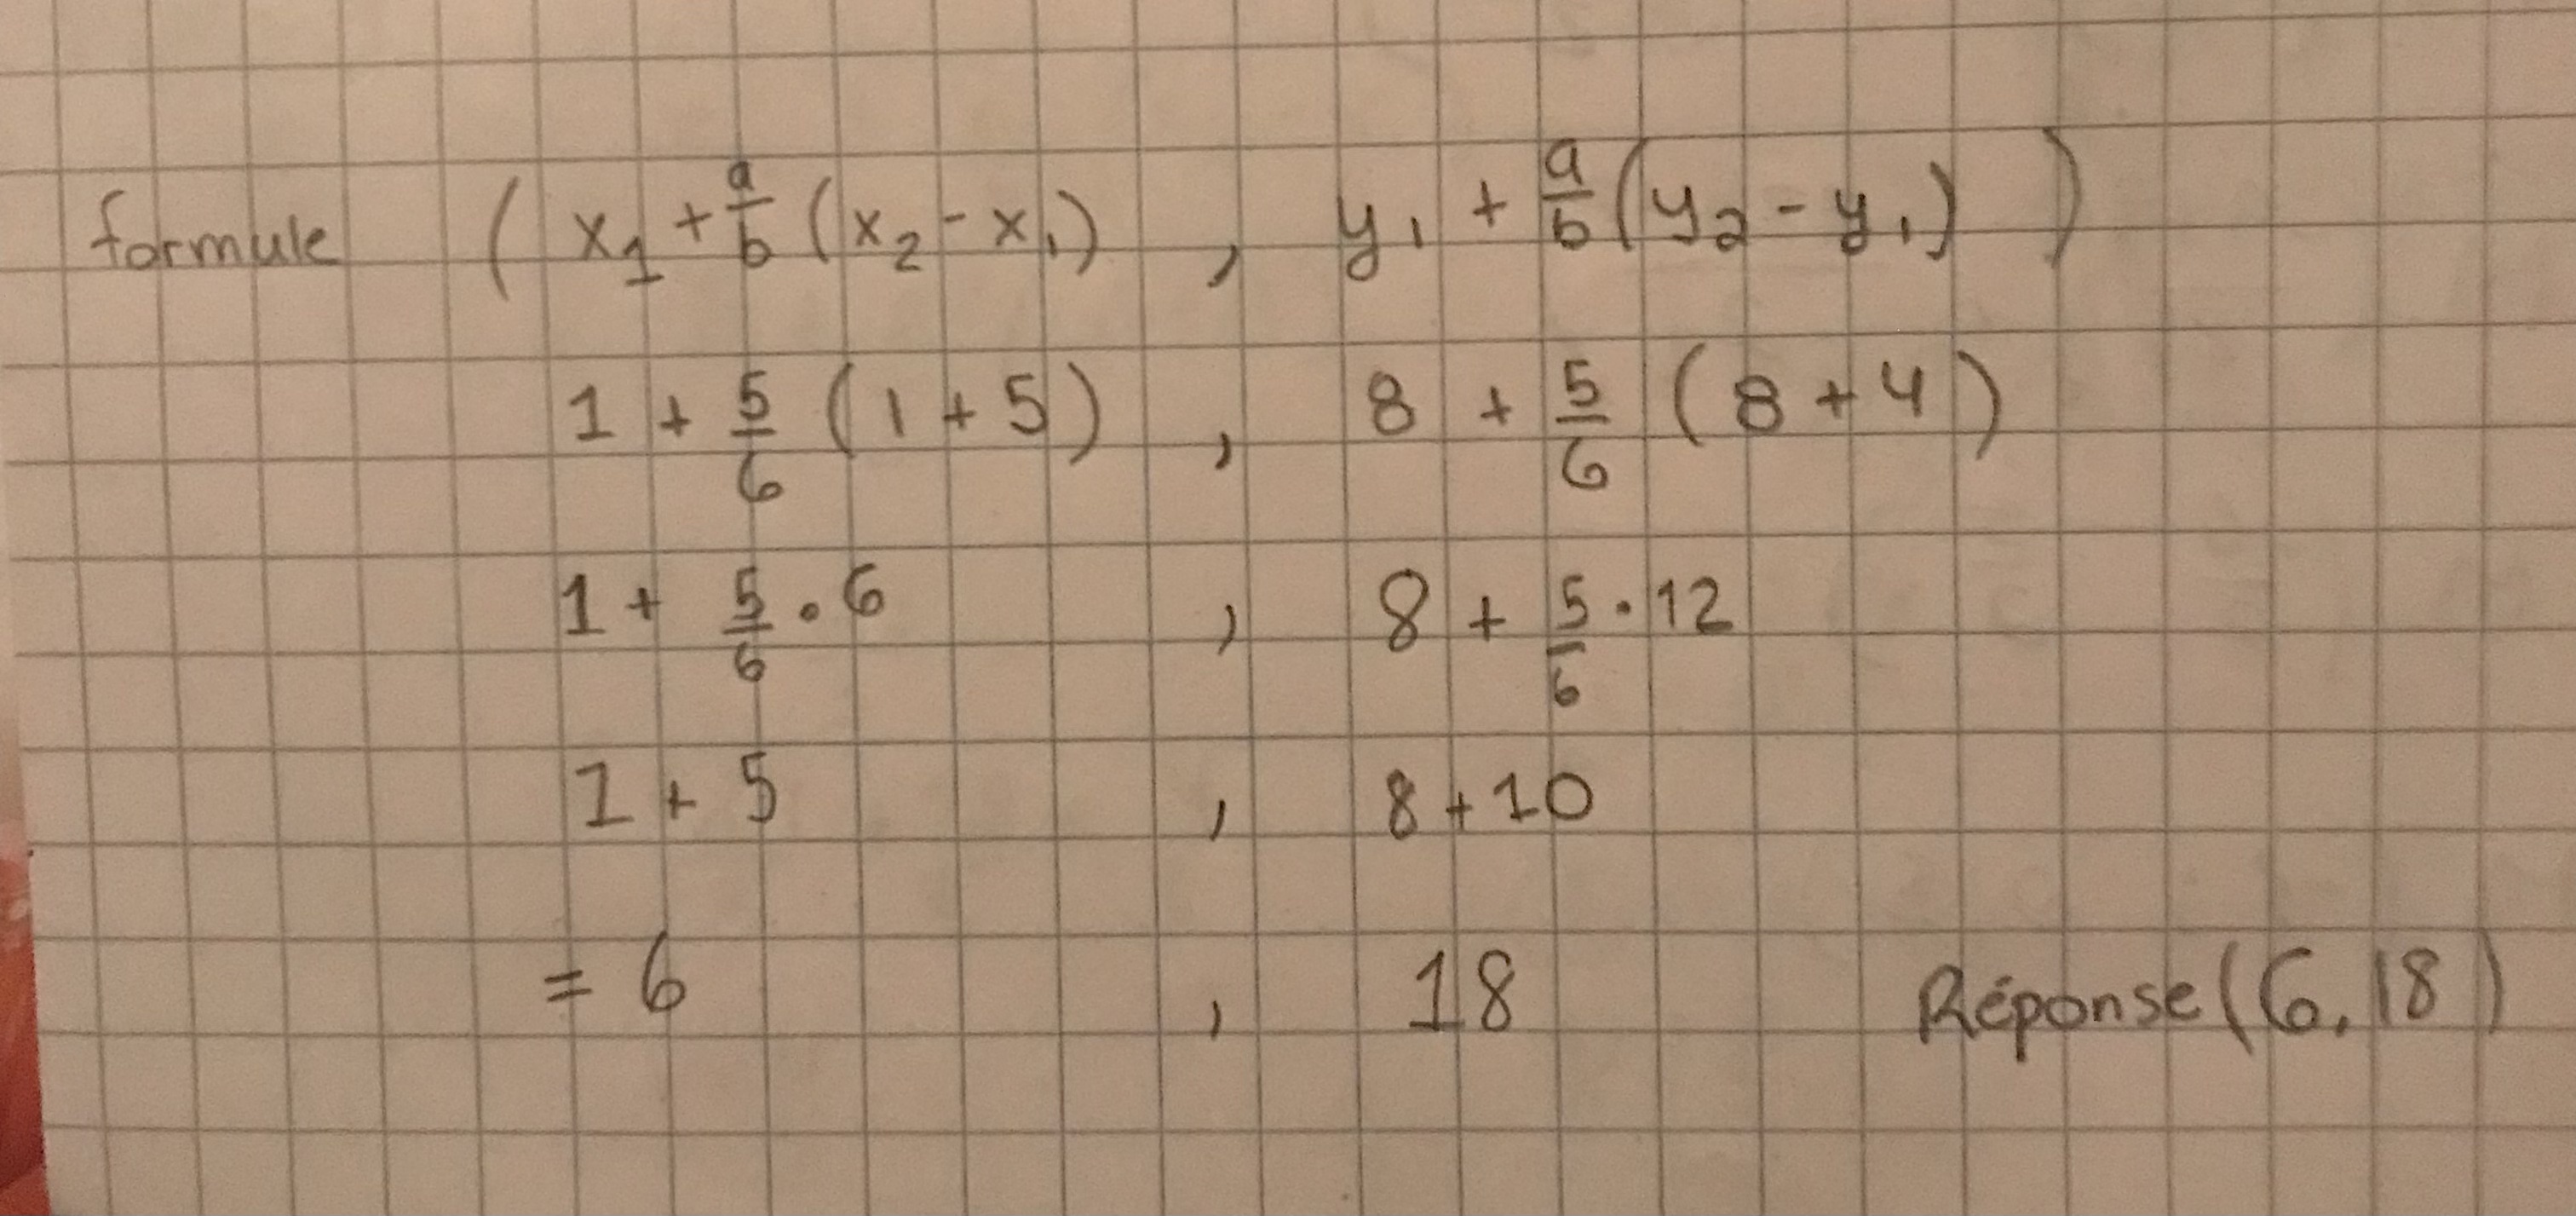 formule ( x₁ + a/b (x₂ - x₁) , y₁ + a/b (y₂ - y₁) )
1 + 5/6 (1 + 5) , 8 + 5/6 (8 + 4)
1 + 5/6 • 6 , 8 + 5/6 • 12
1 + 5 , 8 + 10
= 6 , 18 Réponse (6, 18)